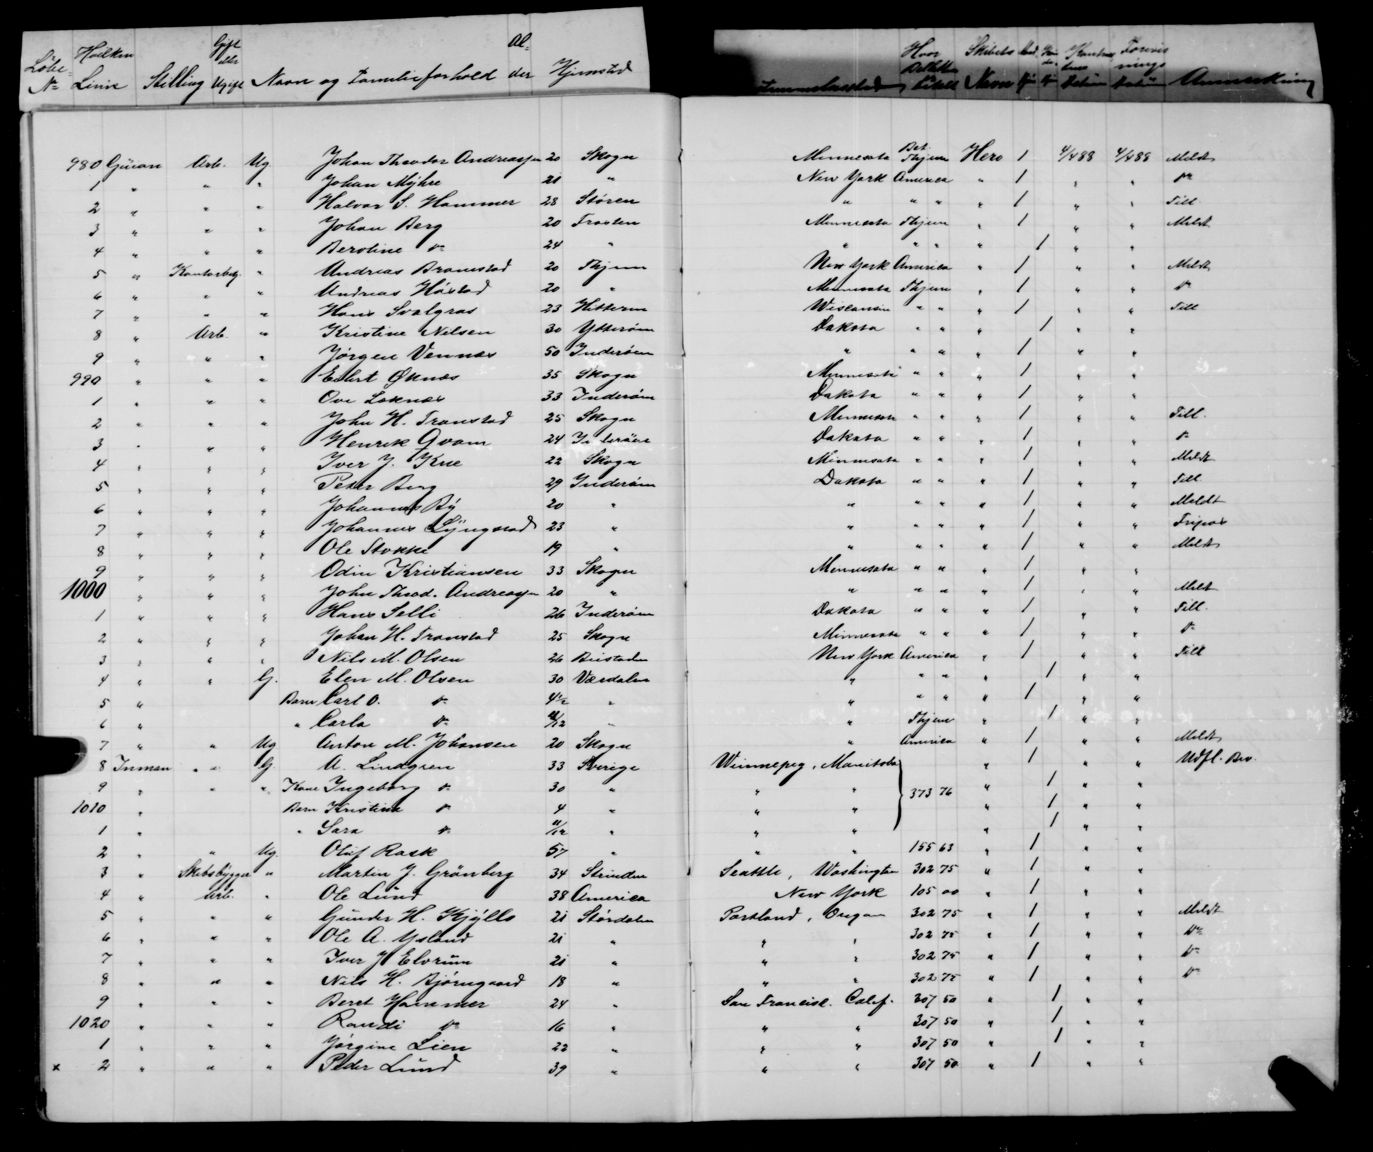 Løbe No Hvilken Linie Stilling Gift eller Ugift Navn og Familieforhold Alder Hjemsted Hvor Billetten betalt Skibets Navn Anmærkning
980 Guion Arb. Ug Johan Theodor Andreassen 20 Skogn Minnesota Bet. Thjem Hero 1 4/4 88 4/4 88 Meldt
1 " " " Johan Myhre 21 " New York America " 1 " " Do
2 " " " Halvor S. Hammer 28 Støren " " " " 1 " " Till
3 " " " Johan Berg 20 Frosten Minnesota Thjem " 1 " " Meldt
4 " " " Berntine Do 24 " " " " " 1 " "
5 " Kontorbetj. " Andreas Bromstad 20 Thjem New York America " 1 " " Meldt
6 " " " Andreas Høstad 20 " Minnesota Thjem " 1 " " Do
7 " " " Hans Svalgras 23 Hitteren Wisconsin " " " 1 " " Till
8 " Arb. " Kristine Nilsen 30 Ytterøen Dakota " " " 1 " "
9 " " " Jørgen Vennes 50 Inderøen " " " " 1 " "
990 " " " Edert Øknes 35 Skogn Minnesota " " " 1 " "
1 " " " Ove Loknes 33 Inderøen Dakota " " " 1 " "
2 " " " John H. Tronstad 25 Skogn Minnesota " " " 1 " " Till.
3 " " " Henrik Qvam 24 Inderøen Dakota " " " 1 " " Do
4 " " " Iver J. Kne 22 Skogn Minnesota " " " 1 " " Meldt
5 " " " Peter Berg 29 Inderøen Dakota " " " 1 " " Till
6 " " " Johannes By 20 " " " " " 1 " " Meldt
7 " " " Johannes Lyngstad 23 " " " " " 1 " " Fripas
8 " " " Ole Stokke 19 " " " " " 1 " " Meldt
9 " " " Odin Kristiansen 33 Skogn Minnesota " " " 1 " "
1000 " " " John Theod. Andreassen 20 " " " " " 1 " " Meldt
1 " " " Hans Selli 26 Inderøen Dakota " " " 1 " " Till.
2 " " " Johan H. Tronstad 25 Skogn Minnesota " " " 1 " " Do
3 " " " Nils M. Olsen 26 Beistaden New York America " 1 " " Till
4 " " G. Elen M. Olsen 30 Værdalen " " " " 1 " "
5 " Barn Carl O. Do 4 1/2 " " " " " 1 " "
6 " " Carla Do /12 " " Thjem " 1 " "
7 " " Ug Anton M. Johansen 20 Skogn " America " 1 " " Meldt
8 Inman " " G. A. Lindgren 33 Sverige Winnepeg, Manitoba " 1 " " Udfl. Bev.
9 " " Kone Ingeborg Do 30 " " " 373 76 " 1 " "
1010 " Barn Kristina Do 4 " " " " 1 " "
1 " " Sara Do /12 " " " " 1 " "
2 " " Ug. Oluf Rask 57 " " " 155 63 " 1 " "
3 " Skibsbygger " Martin J. Grønberg 34 Strinden Seattle, Washington 302 75 " 1 " "
4 " Arb. " Ole Lund 38 America New York 105 00 " 1 " "
5 " " " Gunder H. Kjøllo 21 Størdalen Portland, Oregon 302 75 " 1 " " Meldt
6 " " " Ole A. Ysland 21 " " " 302 75 " 1 " " Do
7 " " " Iver J. Elvrum 21 " " " 302 75 " 1 " " Do
8 " " " Nils H. Bjørngaard 18 " " " 302 75 " 1 " " Do
9 " " " Beret Hammer 24 " San Francisc. Calif. 307 50 " 1 " "
1020 " " " Randi Do 16 " " " 307 50 " 1 " "
1 " " " Jørgine Lien 22 " " " 307 50 " 1 " "
x 2 " " " Peder Lund 39 " " " 307 50 " 1 " "